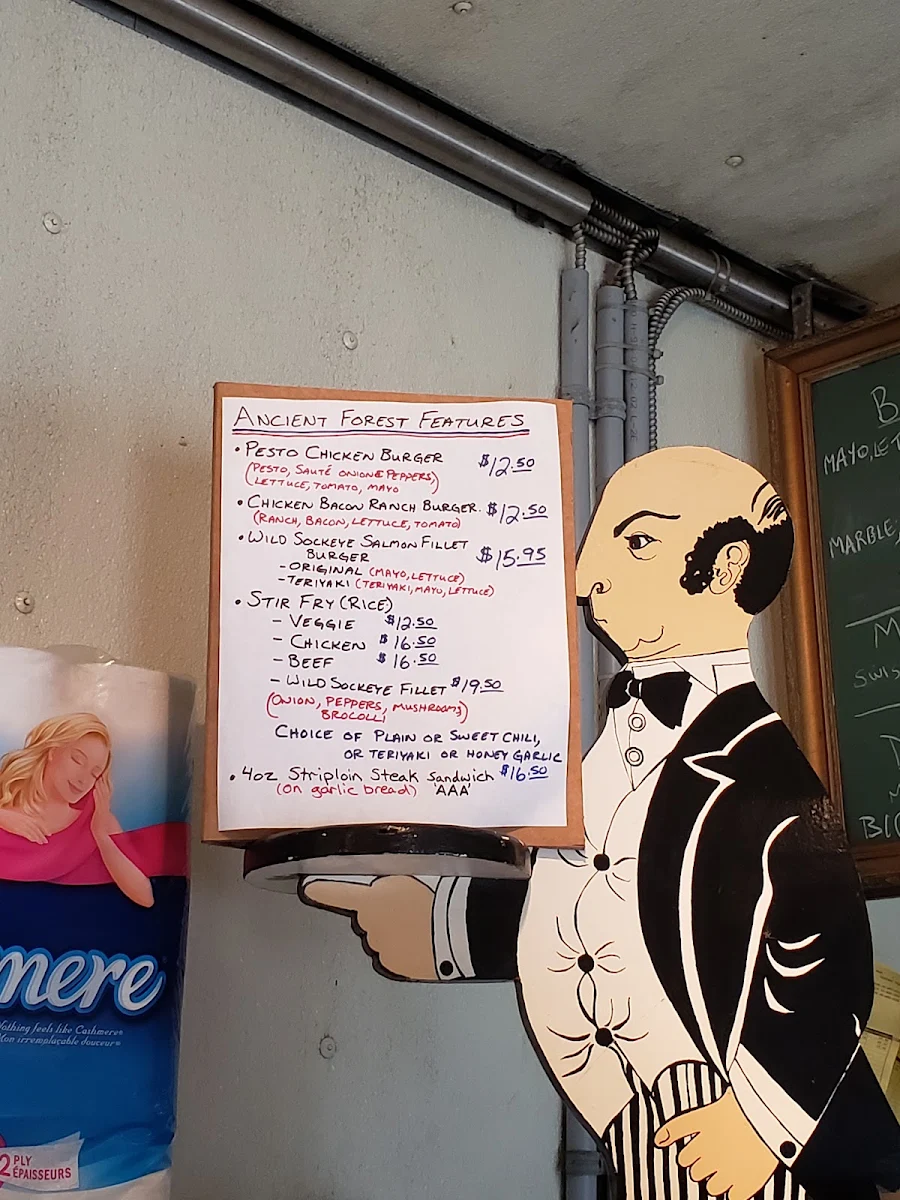 ANCIENT FOREST FEATURES
• PESTO CHICKEN BURGER $12.50
(PESTO, SAUTÉ ONION & PEPPERS,
LETTUCE, TOMATO, MAYO)
• CHICKEN BACON RANCH BURGER. $12.50
(RANCH, BACON, LETTUCE, TOMATO)
• WILD SOCKEYE SALMON FILLET
BURGER $15.95
- ORIGINAL (MAYO, LETTUCE)
- TERIYAKI (TERIYAKI, MAYO, LETTUCE)
• STIR FRY (RICE)
- VEGGIE $12.50
- CHICKEN $16.50
- BEEF $16.50
- WILD SOCKEYE FILLET $19.50
(ONION, PEPPERS, MUSHROOMS
BROCOLLI)
CHOICE OF PLAIN OR SWEET CHILI,
OR TERIYAKI OR HONEY GARLIC
• 4oz Striploin Steak Sandwich $16.50
(on garlic bread) 'AAA'
mere
Nothing feels like Cashmere
Mon irremplaçable douceur
2 PLY
ÉPAISSEURS
B
MAYO, LE
MARBLE,
M
SWIS